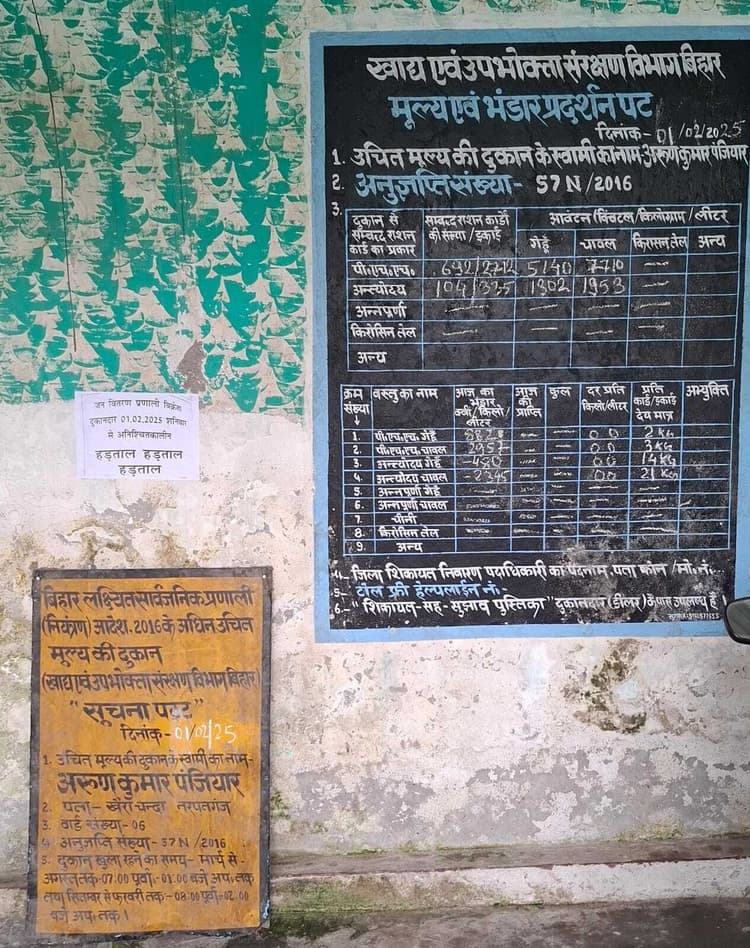 खाद्य एवं उपभोक्ता संरक्षण विभाग बिहार
मूल्य एवं भंडार प्रदर्शन पट
दिनांक- 01/02/2025
1. उचित मूल्य की दुकान के स्वामी का नाम अरूण कुमार पंजियार
2. अनुज्ञप्ति संख्या- 57N/2016
3.
दुकान से सम्बद्ध राशन कार्ड का प्रकार सम्बद्ध राशन कार्डो की संख्या/इकाई आवंटन (क्विंटल/किलोग्राम/लीटर
गेहूँ चावल किरासन तेल अन्य
पी०एच०एच० 692/2712 5140 7710 —
अन्त्योदय 104/335 1302 1953 —
अन्नपूर्णा — — — —
किरोसिन तेल — — — —
अन्य
क्रम संख्या वस्तु का नाम आज का भंडार क्वी/किलो/लीटर आज की प्राप्ति कुल दर प्रति किलो/लीटर प्रति कार्ड/इकाई देय मात्र अभ्युक्ति
1. पी०एच०एच० गेहूँ — — 00 2 kg
2. पी०एच०एच० चावल 2957 — — 00 3 kg
3. अन्त्योदय गेहूँ -480 — — 00 14 kg
4. अन्त्योदय चावल -2395 — — 00 21 kg
5. अन्नपूर्णा गेहूँ — — — — —
6. अन्नपूर्णा चावल — — — — —
7. चीनी — — — — —
8. किरोसिन तेल — — — — —
9. अन्य
4- जिला शिकायत निवारण पदाधिकारी का पदनाम, पता फोन/मो. नं.
5- टॉल फ्री हेल्पलाईन नं.-
6- "शिकायत-सह-सुझाव पुस्तिका" दुकानदार (डीलर) के पास उपलब्ध है।
जन वितरण प्रणाली विक्रेता
दुकानदार 01.02.2025 शनिवार
से अनिश्चितकालीन
हड़ताल हड़ताल
हड़ताल
बिहार लक्ष्यित सार्वजनिक प्रणाली
(नियंत्रण) आदेश, 2016 के अधिन उचित
मूल्य की दुकान
(खाद्य एवं उपभोक्ता संरक्षण विभाग बिहार)
"सूचना पट्ट"
दिनांक- 01/02/25
1. उचित मूल्य की दुकान के स्वामी का नाम-
अरूण कुमार पंजियार
2. पता- खैरा चन्दा नरपतगंज
3. वार्ड संख्या- 06
4. अनुज्ञप्ति संख्या- 57N/2016
5. दुकान खुला रहने का समय- मार्च से-
अगस्त तक-07:00 पूर्वा.-01:00 बजे अप. तक
तथा सितम्बर से फरवरी तक-08:00 पूर्वा.-02:00
बजे अप. तक।